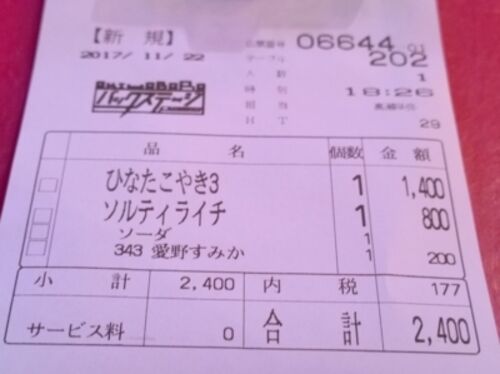 【新 規】 伝票番号 06644-01
2017/ 11/ 22 テーブル 202
人 数 1
時 刻 18:26
バックステージ 担 当
H T 29
品 名 個数 金 額
ひなたこやき3 1 1,400
ソルティライチ 1 800
ソーダ 1
343 愛野すみか 1 200
小 計 2,400 内 税 177
サービス料 0 合 計 2,400